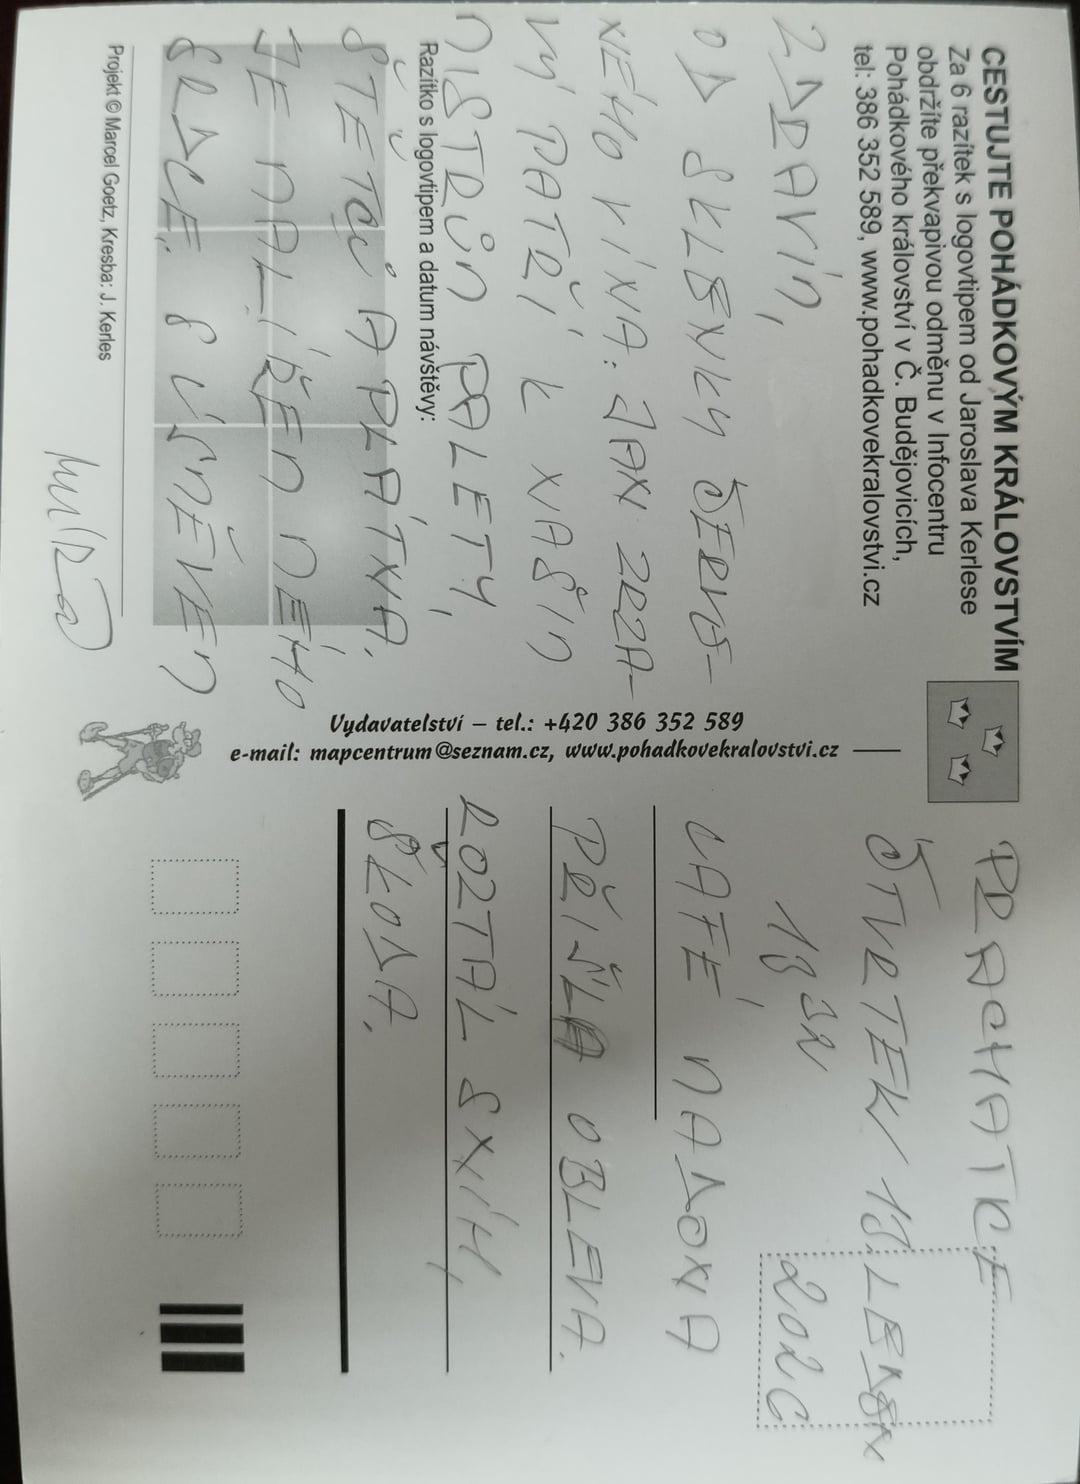 CESTUJTE POHÁDKOVÝM KRÁLOVSTVÍM
Za 6 razítek s logovtipem od Jaroslava Kerlese
obdržíte překvapivou odměnu v Infocentru
Pohádkového království v Č. Budějovicích,
tel: 386 352 589, www.pohadkovekralovstvi.cz
ZDRAVÍM,
OD SKLENKY ČERVE-
NÉHO VÍNA: JAN ZRZA-
VÝ PATŘÍ K NAŠIM
MISTRŮM PALETY,
Razítko s logovtipem a datum návštěvy:
ŠTĚTCŮ A PLÁTNA.
JE MALÍŘEM MÉHO
SRDCE. S ÚSMĚVEM
Projekt © Marcel Goetz, Kresba: J. Kerles
Vydavatelství – tel.: +420 386 352 589
e-mail: mapcentrum@seznam.cz, www.pohadkovekralovstvi.cz
PRACHATICE
ČTVRTEK/ 15 LEDEN
2026
CAFÉ MADONA
PŘIŠLA OBLEVA.
ROZTÁL SNÍH,
ŠKODA.